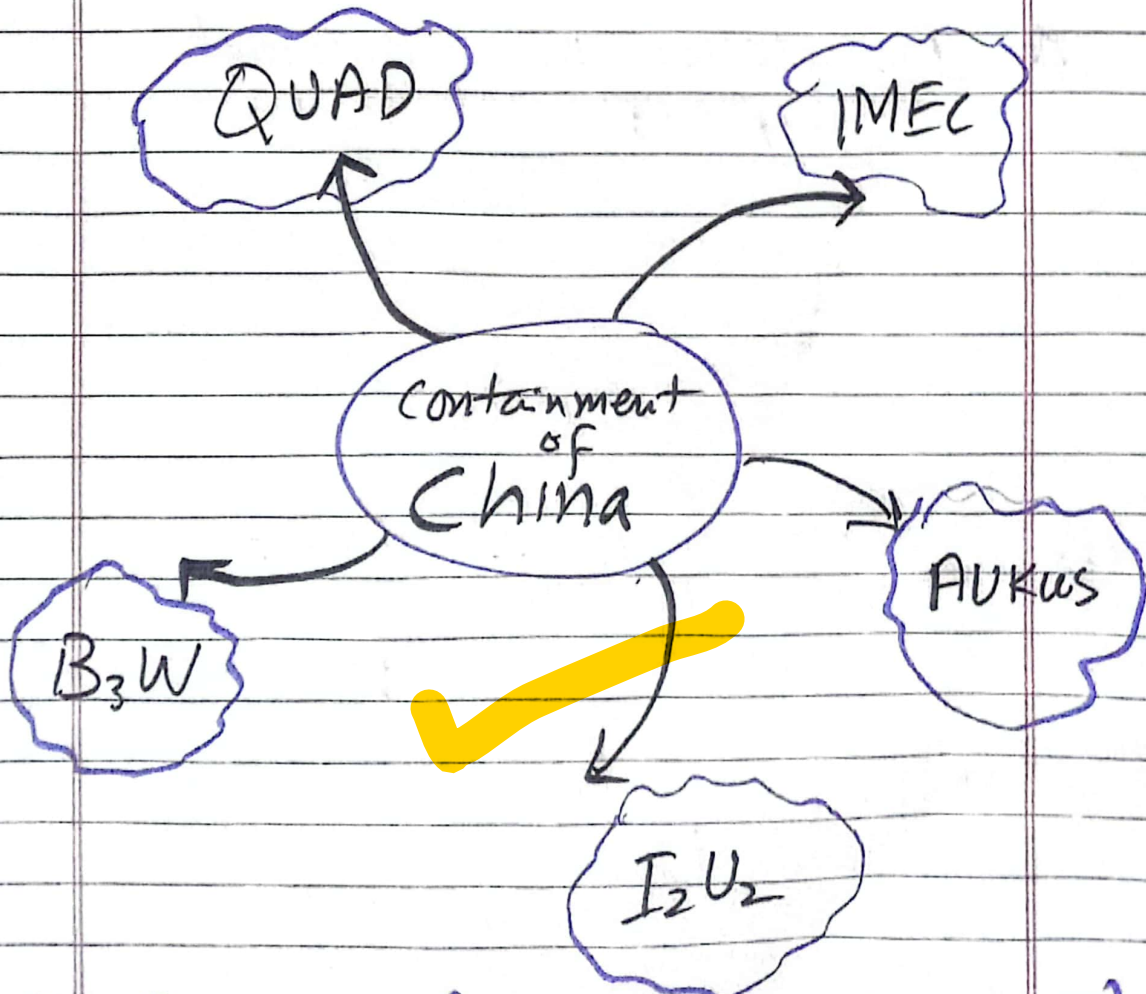 QUAD
IMEC
Containment
of
China
AUKUS
B₃W
I₂U₂